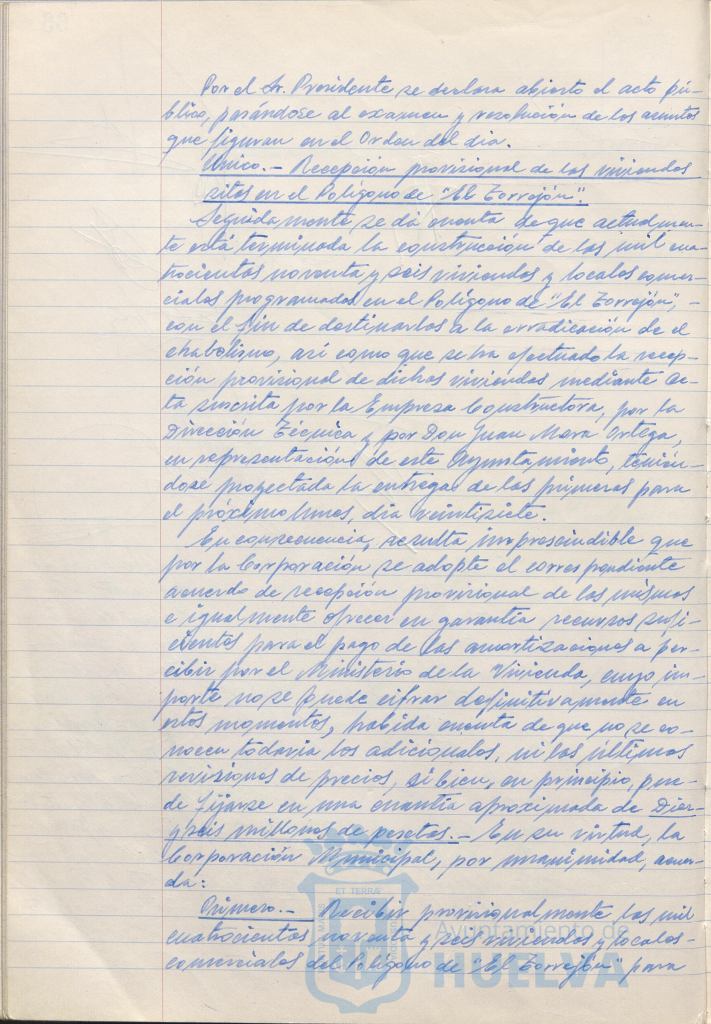 Por el Sr. Presidente se declara abierto el acto pú-
blico, pasándose al examen y resolución de los asuntos
que figuran en el Orden del día.
Unico.- Recepción provisional de las viviendas
sitas en el Polígono de "El Torrejón".
Seguidamente se dá cuenta de que actualmen-
te está terminada la construcción de las mil cua-
trocientas noventa y seis viviendas y locales comer-
ciales programados en el Polígono de "El Torrejón",-
con el fin de destinarlos a la erradicación de el
chabolismo, así como que se ha efectuado la recep-
ción provisional de dichas viviendas mediante Ac-
ta suscrita por la Empresa Constructora, por la
Dirección Técnica y por Don Juan Mora Ortega,
en representación de este Ayuntamiento, tenién-
dose proyectada la entrega de las primeras para
el próximo lunes, día veintisiete.
En consecuencia, resulta imprescindible que
por la Corporación se adopte el correspondiente
acuerdo de recepción provisional de las mismas
e igualmente ofrecer en garantía recursos sufi-
cientes para el pago de las amortizaciones a per-
cibir por el Ministerio de la Vivienda, cuyo im-
porte no se puede cifrar definitivamente en
estos momentos, habida cuenta de que no se co-
nocen todavía los adicionales, ni las últimas
revisiones de precios, si bien, en principio, pue-
de fijarse en una cuantía aproximada de Diez
y seis millones de pesetas.- En su virtud, la
Corporación Municipal, por unanimidad, acuer-
da:
Primero.- Recibir provisionalmente las mil
cuatrocientas noventa y seis viviendas y locales-
comerciales del Polígono de "El Torrejón" para
Ayuntamiento de
HUELVA
ET TERRÆ